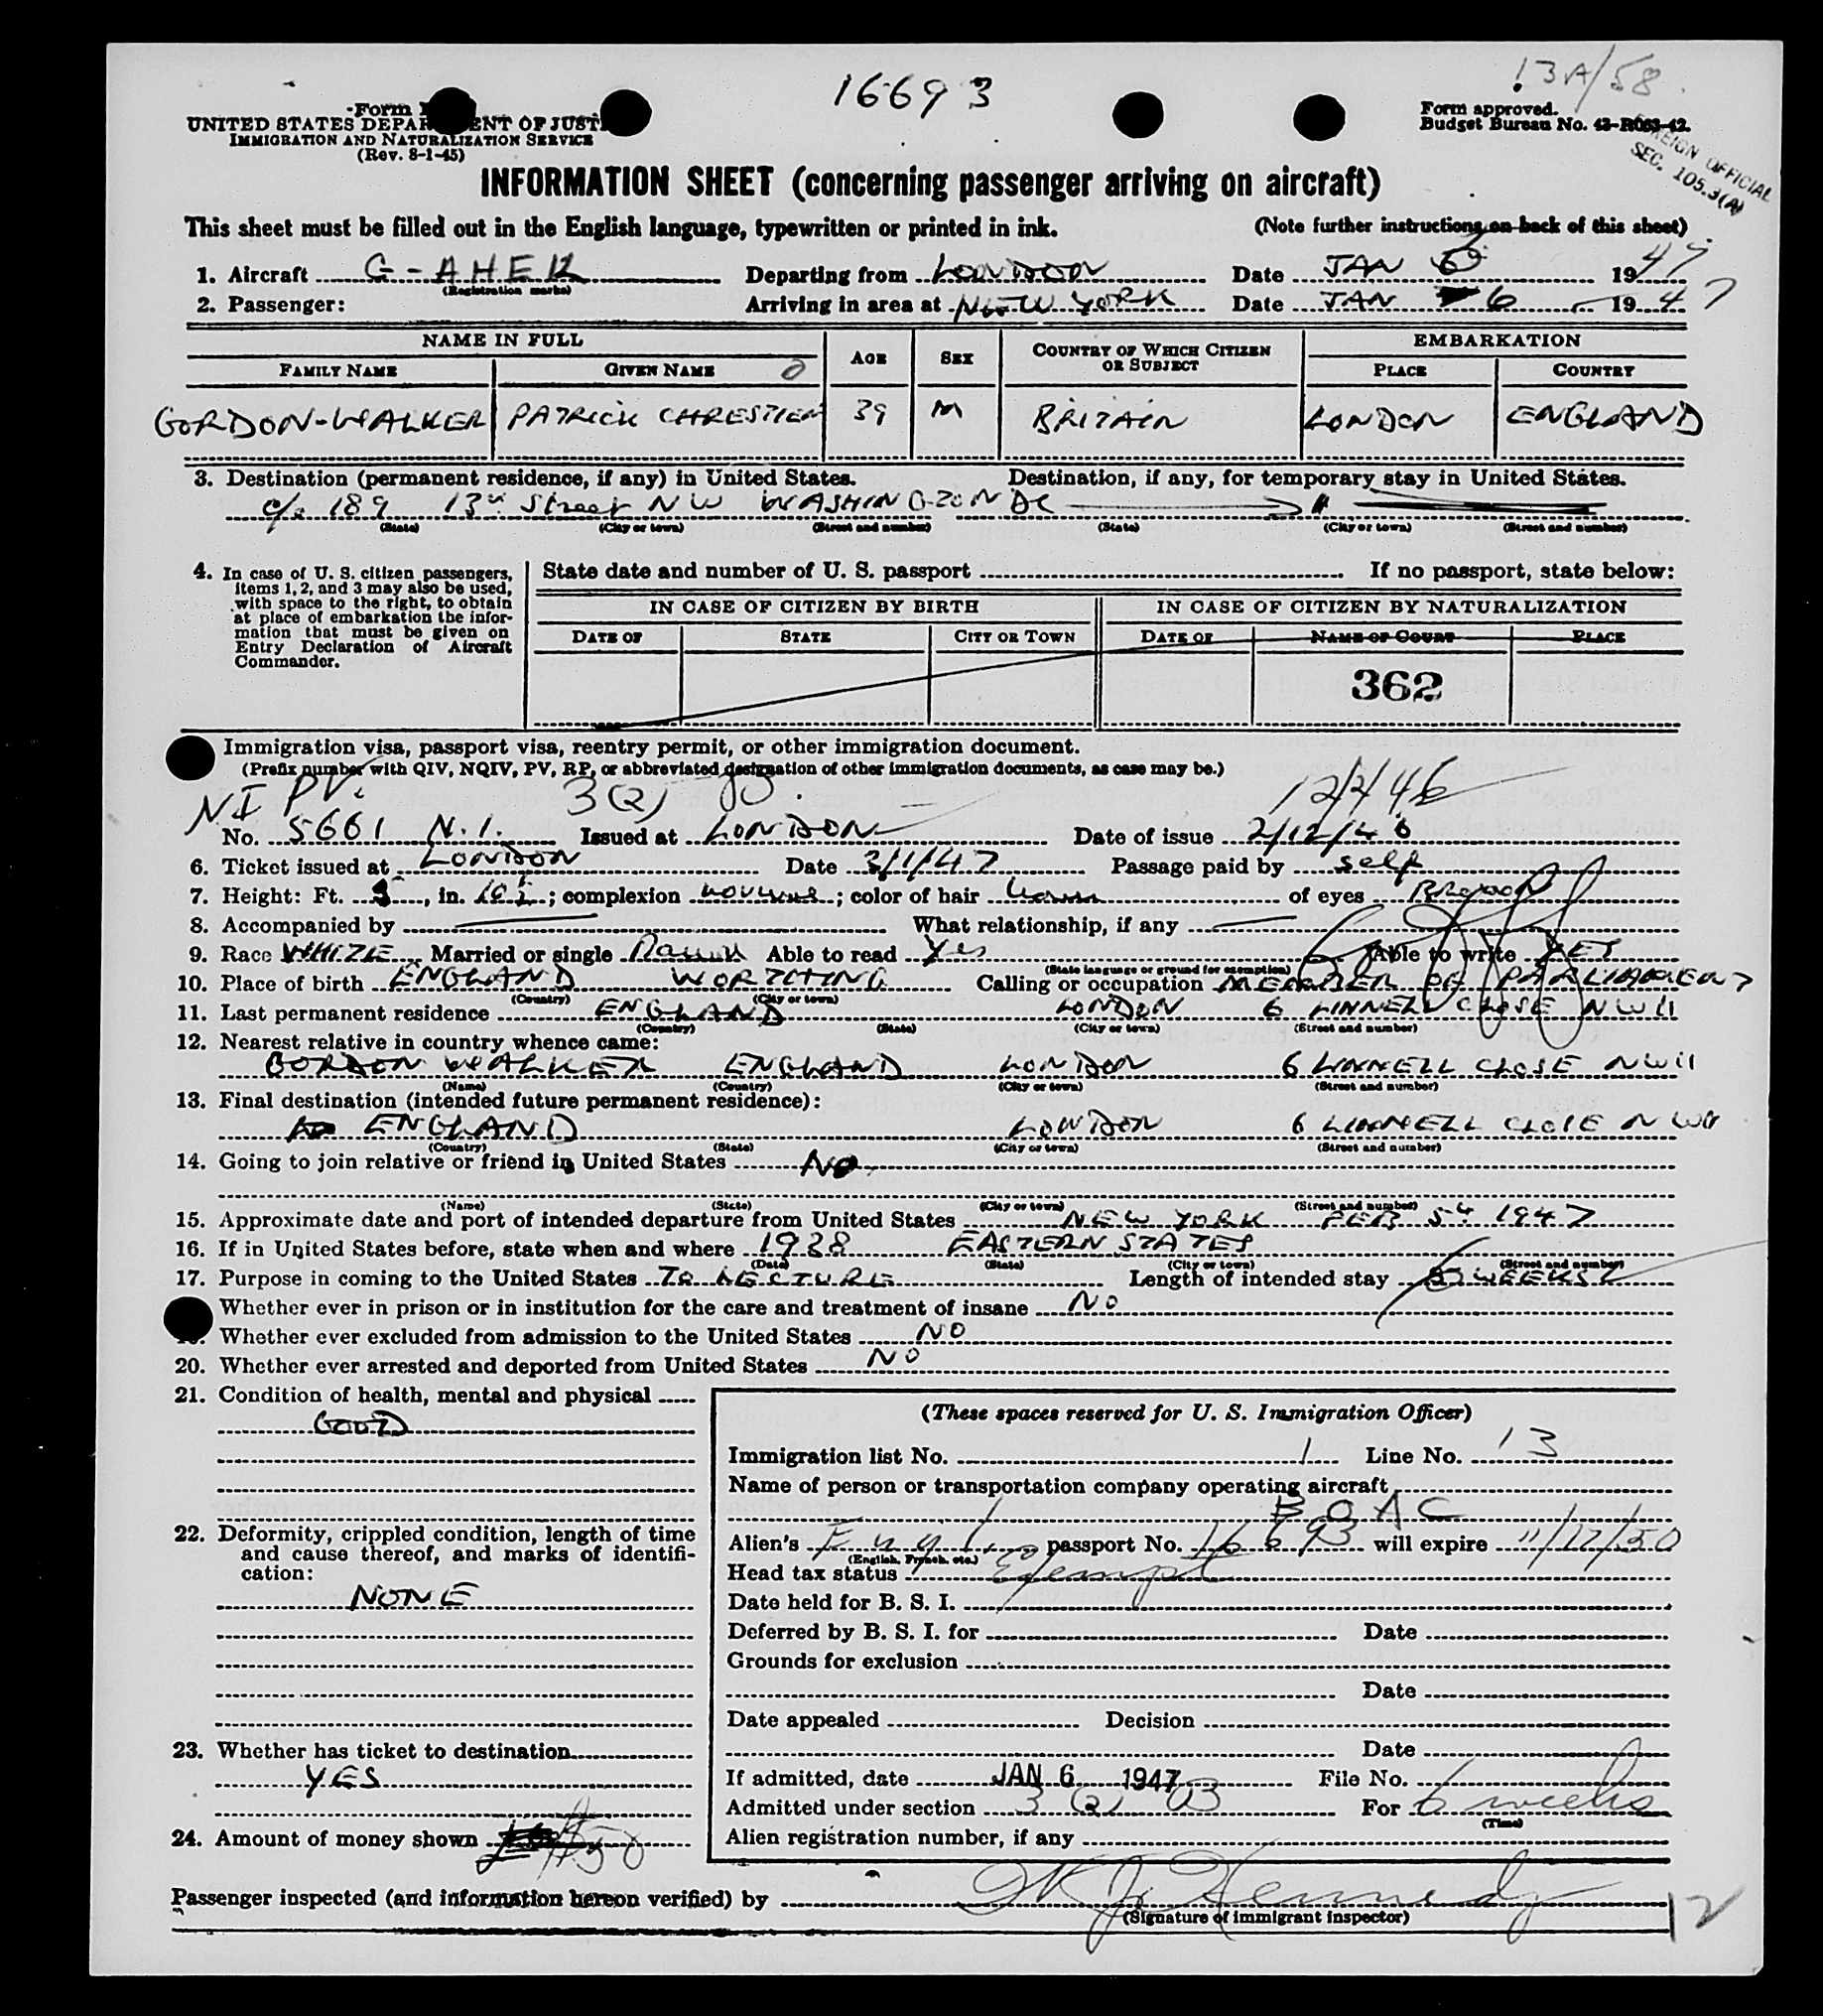 16693
13A/58
Form
UNITED STATES DEPARTMENT OF JUSTICE
IMMIGRATION AND NATURALIZATION SERVICE
(Rev. 8-1-45)
Form approved.
Budget Bureau No. 43-R063-42.
FOREIGN OFFICIAL
SEC. 105.3(A)
INFORMATION SHEET (concerning passenger arriving on aircraft)
This sheet must be filled out in the English language, typewritten or printed in ink. (Note further instructions on back of this sheet)
1. Aircraft G-AHEK Departing from LONDON Date JAN 1947
(Registration marks)
2. Passenger: Arriving in area at NEW YORK Date JAN 6 1947
NAME IN FULL AGE SEX COUNTRY OF WHICH CITIZEN OR SUBJECT EMBARKATION
FAMILY NAME GIVEN NAME PLACE COUNTRY
GORDON-WALKER PATRICK CHRESTIEN 39 M BRITAIN LONDON ENGLAND
3. Destination (permanent residence, if any) in United States. Destination, if any, for temporary stay in United States.
c/o 189 13th Street NW WASHINGTON DC
(State) (City or town) (Street and number) (State) (City or town) (Street and number)
4. In case of U. S. citizen passengers, items 1, 2, and 3 may also be used, with space to the right, to obtain at place of embarkation the information that must be given on Entry Declaration of Aircraft Commander.
State date and number of U. S. passport If no passport, state below:
IN CASE OF CITIZEN BY BIRTH IN CASE OF CITIZEN BY NATURALIZATION
DATE OF STATE CITY OR TOWN DATE OF NAME OF COURT PLACE
362
Immigration visa, passport visa, reentry permit, or other immigration document.
(Prefix number with QIV, NQIV, PV, RP, or abbreviated designation of other immigration documents, as case may be.)
NI PV. 3(2) 12/2/46
No. 5661 N.I. Issued at LONDON Date of issue 2/12/46
6. Ticket issued at LONDON Date 3/1/47 Passage paid by self
7. Height: Ft. , in. 10½; complexion ; color of hair of eyes Brown
8. Accompanied by What relationship, if any
9. Race WHITE Married or single Able to read Yes Able to write YES
(State language or ground for exemption)
10. Place of birth ENGLAND WORTHING Calling or occupation MEMBER OF PARLIAMENT
(Country) (City or town)
11. Last permanent residence ENGLAND LONDON 6 LINNELL CLOSE NW11
(Country) (State) (City or town) (Street and number)
12. Nearest relative in country whence came:
GORDON WALKER ENGLAND LONDON 6 LINNELL CLOSE NW11
(Name) (Country) (City or town) (Street and number)
13. Final destination (intended future permanent residence):
ENGLAND LONDON 6 LINNELL CLOSE NW11
(Country) (State) (City or town) (Street and number)
14. Going to join relative or friend in United States No
(Name) (State) (City or town) (Street and number)
15. Approximate date and port of intended departure from United States NEW YORK FEB 5th 1947
16. If in United States before, state when and where 1938 EASTERN STATES
(Date) (State) (City or town) (Street and number)
17. Purpose in coming to the United States TO LECTURE Length of intended stay 6 WEEKS
Whether ever in prison or in institution for the care and treatment of insane No
19. Whether ever excluded from admission to the United States NO
20. Whether ever arrested and deported from United States NO
21. Condition of health, mental and physical
GOOD
22. Deformity, crippled condition, length of time and cause thereof, and marks of identification:
NONE
23. Whether has ticket to destination
YES
24. Amount of money shown $50
(These spaces reserved for U. S. Immigration Officer)
Immigration list No. 1 Line No. 13
Name of person or transportation company operating aircraft
BOAC
Alien's Engl. passport No. 16693 will expire 11/17/50
(English, French, etc.)
Head tax status Exempt
Date held for B. S. I.
Deferred by B. S. I. for Date
Grounds for exclusion
Date
Date appealed Decision
Date
If admitted, date JAN 6 1947 File No.
Admitted under section 3 (2) 03 For 6 weeks
(Time)
Alien registration number, if any
Passenger inspected (and information hereon verified) by Kennedy
(Signature of immigrant inspector)
12